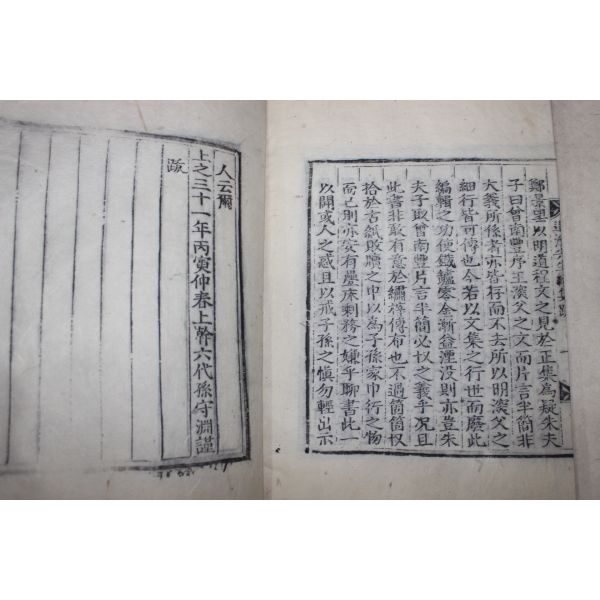 鄭景里以明道程文之見於正集為疑朱夫
子曰曾南豐序王深父之文而片言半簡非
大義所係者亦皆存而不去所以明深父之
細行皆可傳也今若以文集之行世而廢此
編輯之功使鐵爐零金漸益湮没則亦豈朱
夫子取曾南豐片言半簡必収之義乎況且
此書非敢有意於繡梓傳布也不過箇箇収
拾於古紙敗牘之中以為子孫家中行之物
而已則亦安有疊床剩務之嫌乎聊書此一
以開或人之惑且以戒子孫之愼勿輕出示
人云爾
上之三十一年丙寅仲春上幹六代孫守淵謹
跋